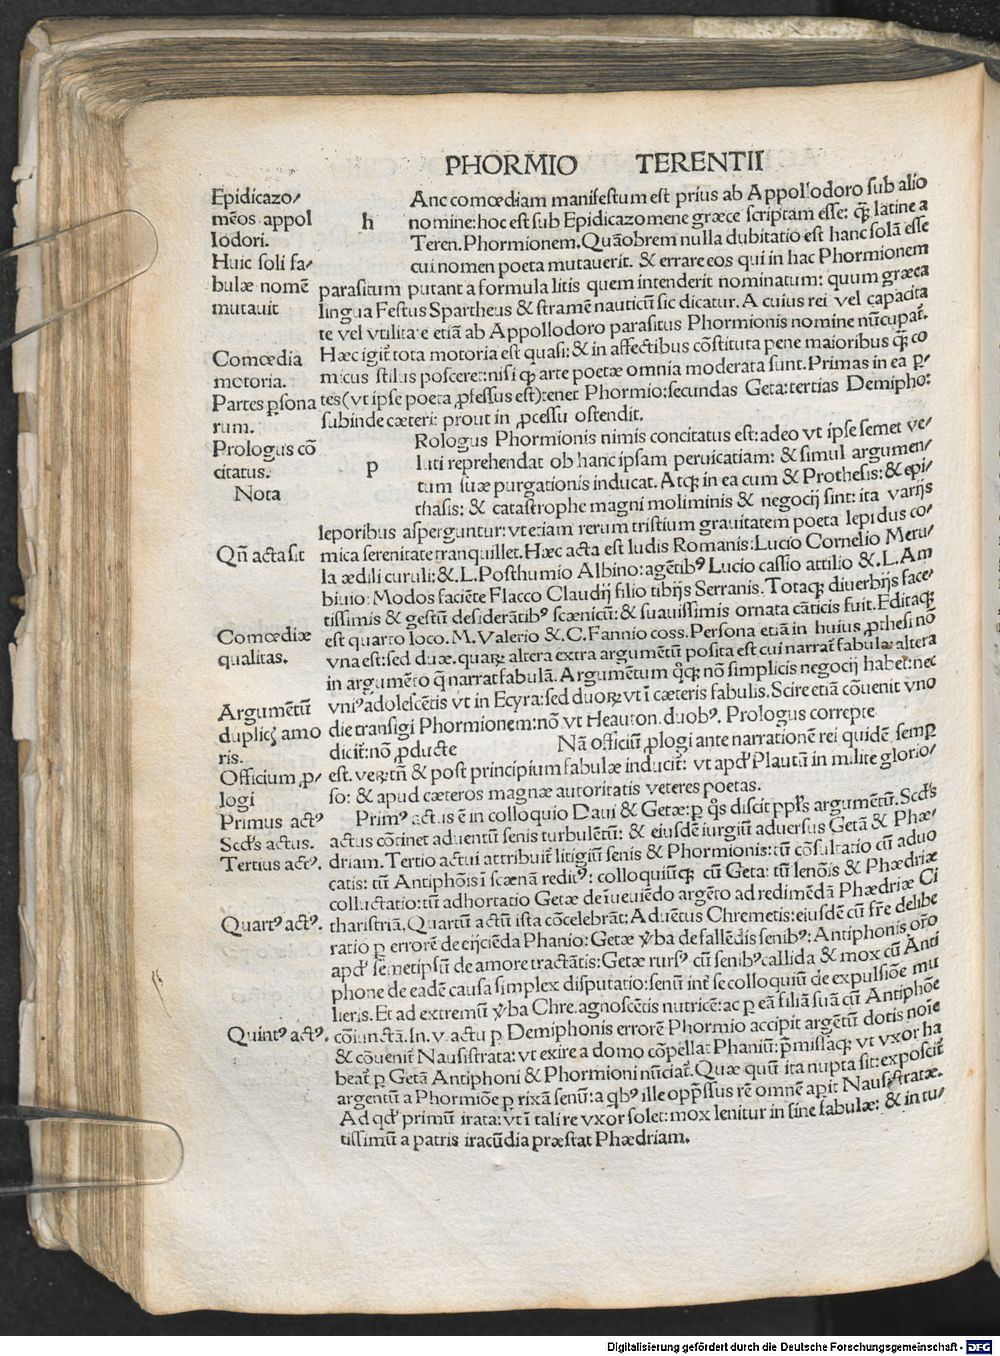 PHORMIO TERENTII
Epidicazo/
mēos appol
lodori.
Huic soli fa/
bulæ nomē
mutauit
Comœdia
motoria.
Partes ꝑsona
rum.
Prologus cō
citatus.
Nota
Qñ acta sit
Comœdiæ
qualitas.
Argumētū
duplicꝭ amo
ris.
Officium ꝓ/
logi
Primus actꝰ
Scd's actus.
Tertius actꝰ.
Quartꝰ actꝰ.
Quintꝰ actꝰ.
h
Anc comœdiam manifestum est prius ab Appollodoro sub alio
nomine: hoc est sub Epidicazomene græce scriptam esse: qꝫ latine a
Teren. Phormionem. Quāobrem nulla dubitatio est hanc solā esse
cui nomen poeta mutauerit. & errare eos qui in hac Phormionem
parasitum putant a formula litis quem intenderit nominatum: quum græca
lingua Festus Spartheus & stramē nauticū sic dicatur. A cuius rei vel capacita
te vel vtilitate etiā ab Appollodoro parasitus Phormionis nomine nūcupat̄.
Hæc igit̄ tota motoria est quasi: & in affectibus cōstituta pene maioribus qꝫ co
micus stilus posceret: nisi qꝫ arte poetæ omnia moderata sunt. Primas in ea ꝑ/
tes (vt ipse poeta ꝓfessus est) tenet Phormio: secundas Geta: tertias Demipho:
subinde cæteri: prout in ꝓcessu ostendit̄.
p
Rologus Phormionis nimis concitatus est: adeo vt ipse semet ve/
luti reprehendat ob hanc ipsam peruicatiam: & simul argumen/
tum suæ purgationis inducat. Atqꝫ in ea cum & Prothesis: & epi/
thasis: & catastrophe magni moliminis & negocij sint: ita varijs
leporibus asperguntur: vt etiam rerum tristium grauitatem poeta lepidus co/
mica serenitate tranquillet. Hæc acta est ludis Romanis: Lucio Cornelio Meru/
la ædili curuli: &. L. Posthumio Albino: agētibꝰ Lucio cassio attilio &. L. Am
biuio: Modos faciēte Flacco Claudij filio tibijs Serranis. Totaqꝫ diuerbijs face/
tissimis & gestū desiderātibꝰ scænicū: & suauissimis ornata cāticis fuit. Editaqꝫ
est quarto loco. M. Valerio &. C. Fannio coss. Persona etiā in huius ꝓthesi nō
vna est: sed duæ. quaꝝ altera extra argumētū posita est cui narrat̄ fabula: altera
in argumēto q̄ narrat fabulā. Argumētum qꝰqꝫ nō simplicis negocij habet: nec
vniꝰ adolescētis vt in Ecyra: sed duoꝝ vt ī cæteris fabulis. Scire etiā cōuenit vno
die transigi Phormionem: nō vt Heauton. duobꝰ. Prologus correpte
dicit̄: nō ꝓducte Nā officiū ꝓlogi ante narrationē rei quidē semꝑ
est. veꝝtn̄ & post principium fabulæ inducit̄: vt apd' Plautū in milite glorio/
so: & apud cæteros magnæ autoritatis veteres poetas.
Primꝰ actus ē in colloquio Daui & Getæ: ꝑ qꝰs discit ppl's argumētū. Scd's
actus cōtinet aduentū senis turbulētū: & eiusdē iurgiū aduersus Getā & Phæ/
driam. Tertio actui attribuit̄ litigiū senis & Phormionis: tū cōsultatio cū aduo
catis: tū Antiphōis ī scænā reditꝰ: colloquiūqꝫ cū Geta: tū lenōis & Phædriæ
colluctatio: tū adhortatio Getæ de īueuiēdo argēto ad redimēdā Phædriæ Ci
tharistriā. Quartū actū ista cōcelebrāt: Aduētus Chremetis: eiusdē cū fr̄e delibe
ratio ꝑ errorē de eijciēda Phanio: Getæ v̄ba de fallēdis senibꝰ: Antiphonis or̄o
apd' sēmetipsū de amore tractātis: Getæ rursꝰ cū senibꝰ callida & mox cū Anti
phone de eadē causa simplex disputatio: senū int̄ se colloquiū de expulsiōe mu
lieris. Et ad extremū v̄ba Chre. agnoscētis nutricē: ac ꝑ eā filiā suā cū Antiphōe
cōiunctā. In. v. actu ꝑ Demiphonis errorē Phormio accipit argētū dotis noīe
& cōuenit̄ Nausistrata: vt exire a domo cōpellat Phaniū: p̄missaqꝫ vt vxor ha
beat̄ ꝑ Getā Antiphoni & Phormioni nūciat̄. Quæ quū ita nupta sit: exposcit̄
argentū a Phormiōe ꝑ rixā senū: a qbꝰ ille opp̄ssus rē omnē apit Nausistratæ.
Ad qd' primū irata: vt ī tali re vxor solet: mox lenitur in fine fabulæ: & in tu/
tissimū a patris iracūdia præstat Phædriam.
Digitalisierung gefördert durch die Deutsche Forschungsgemeinschaft - DFG